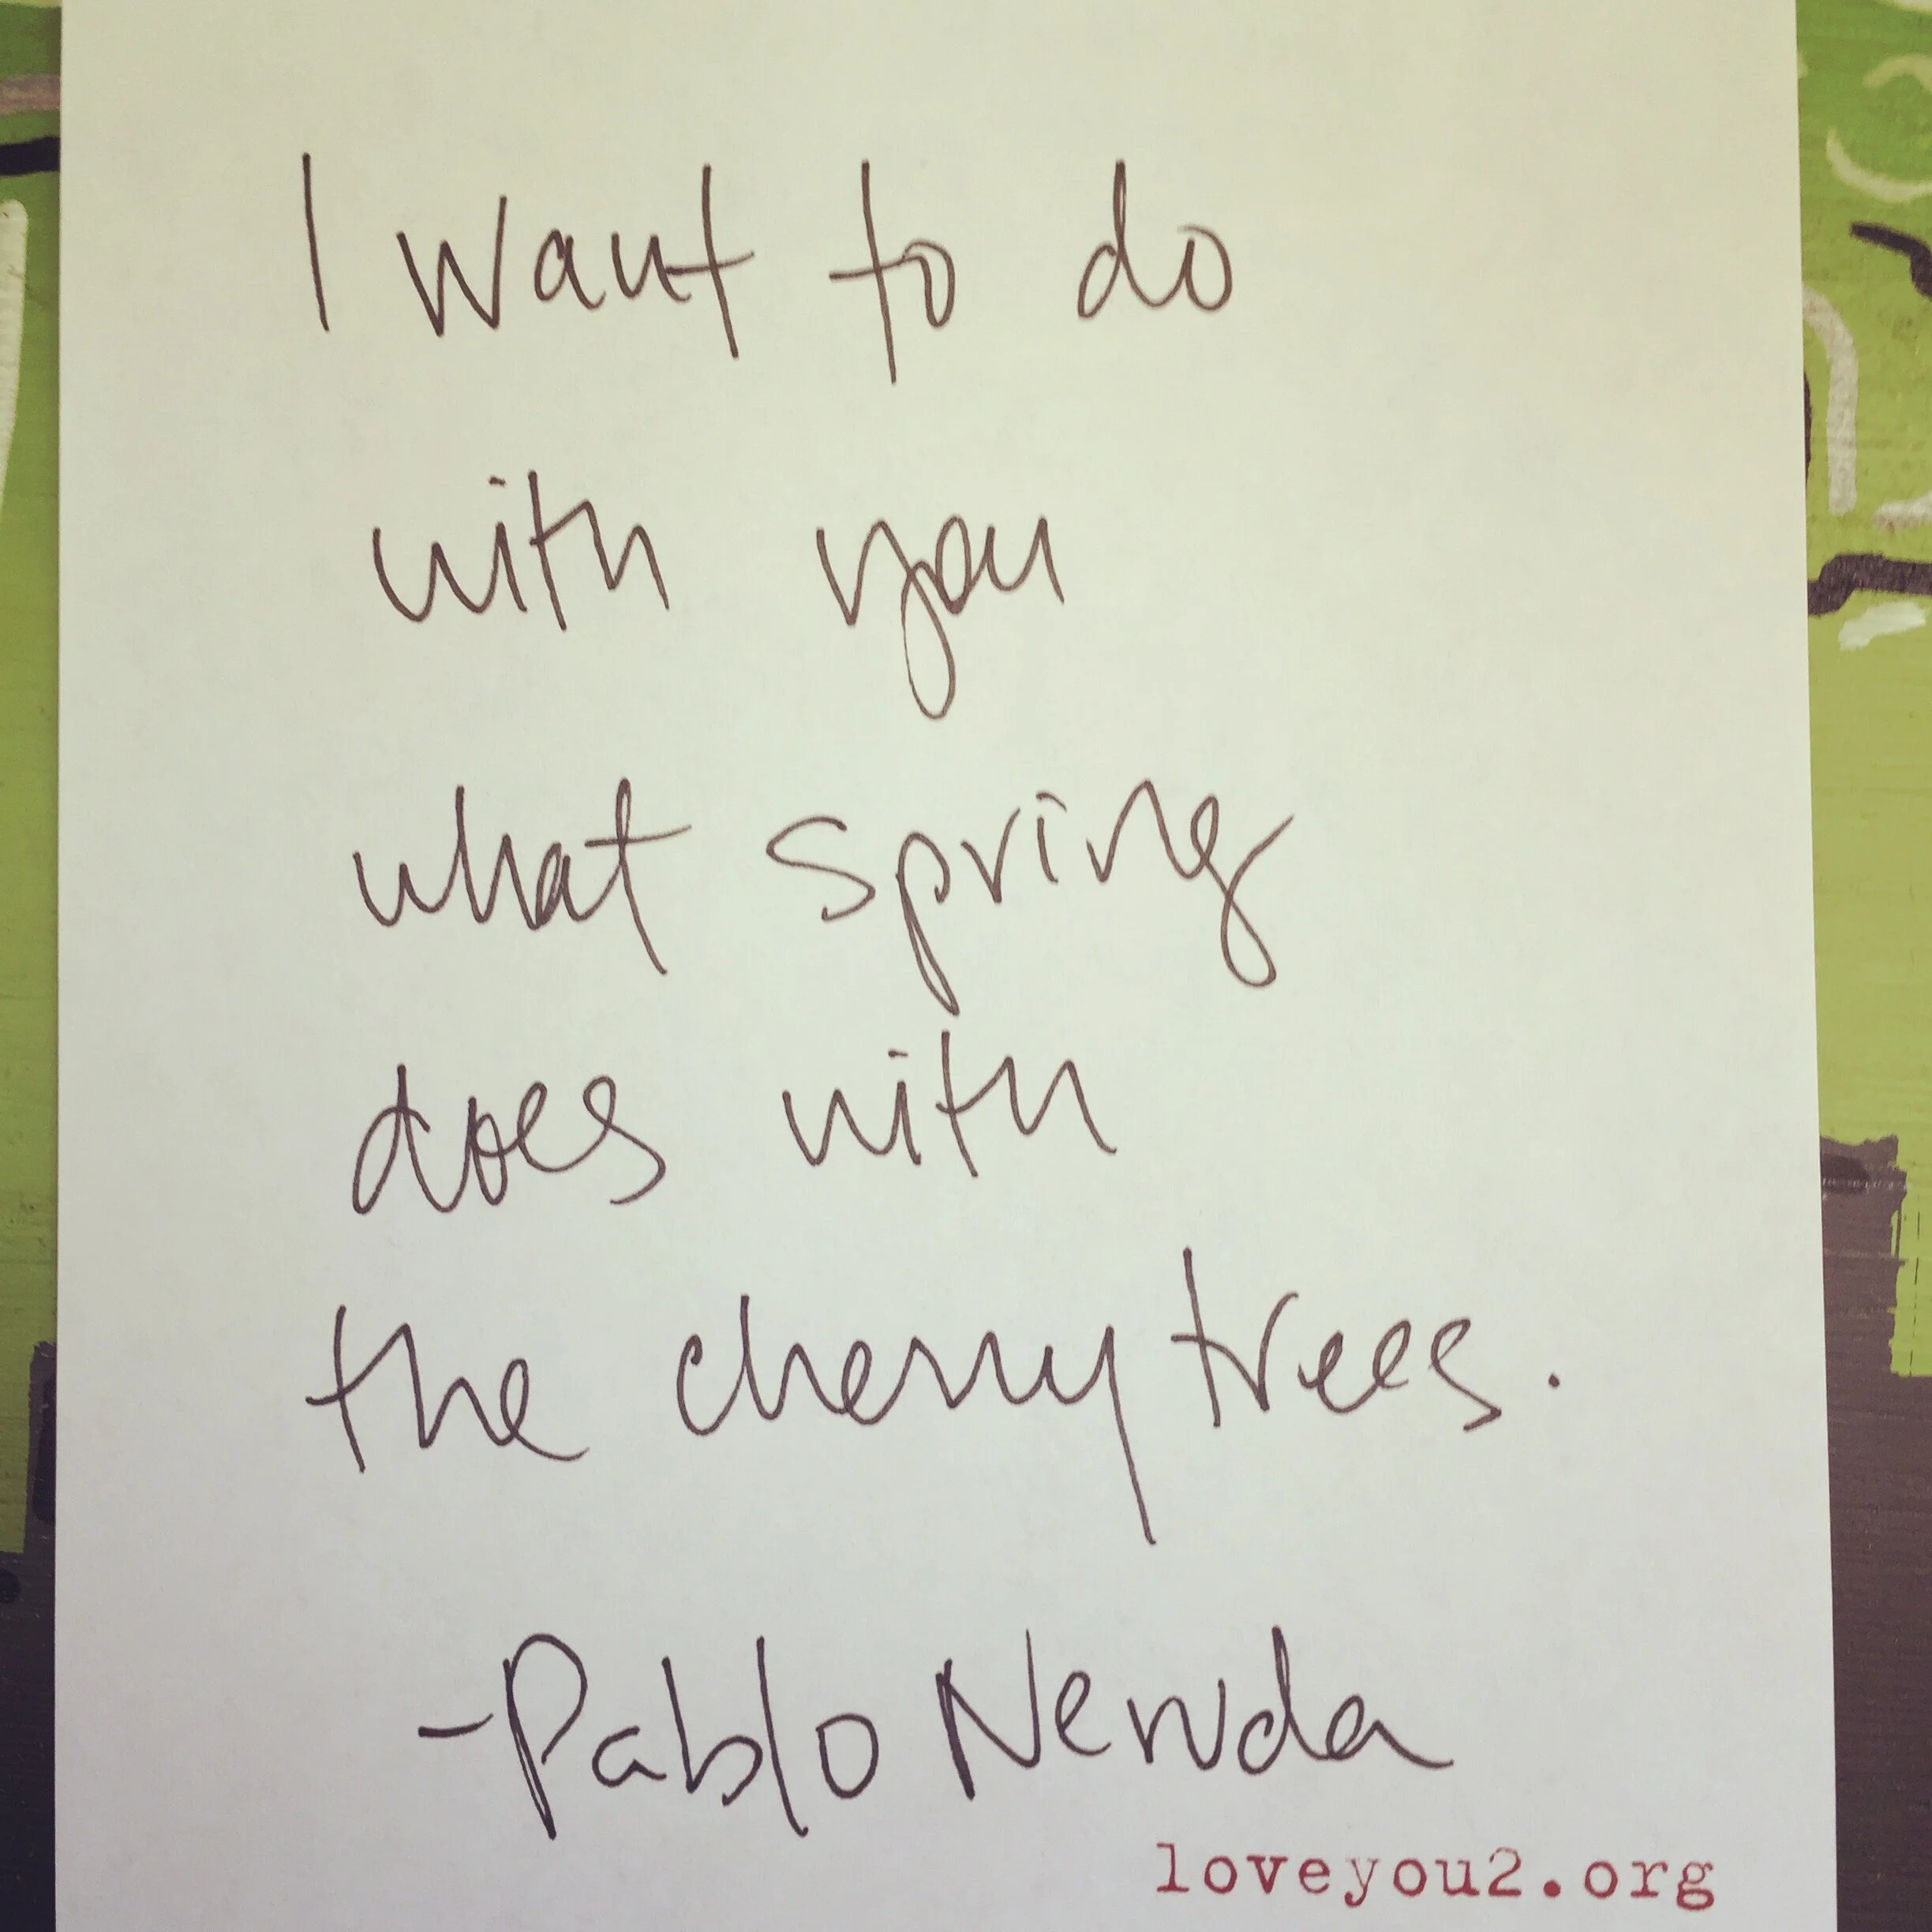 I want to do
with you
what spring
does with
the cherry trees.
-Pablo Neruda
loveyou2.org